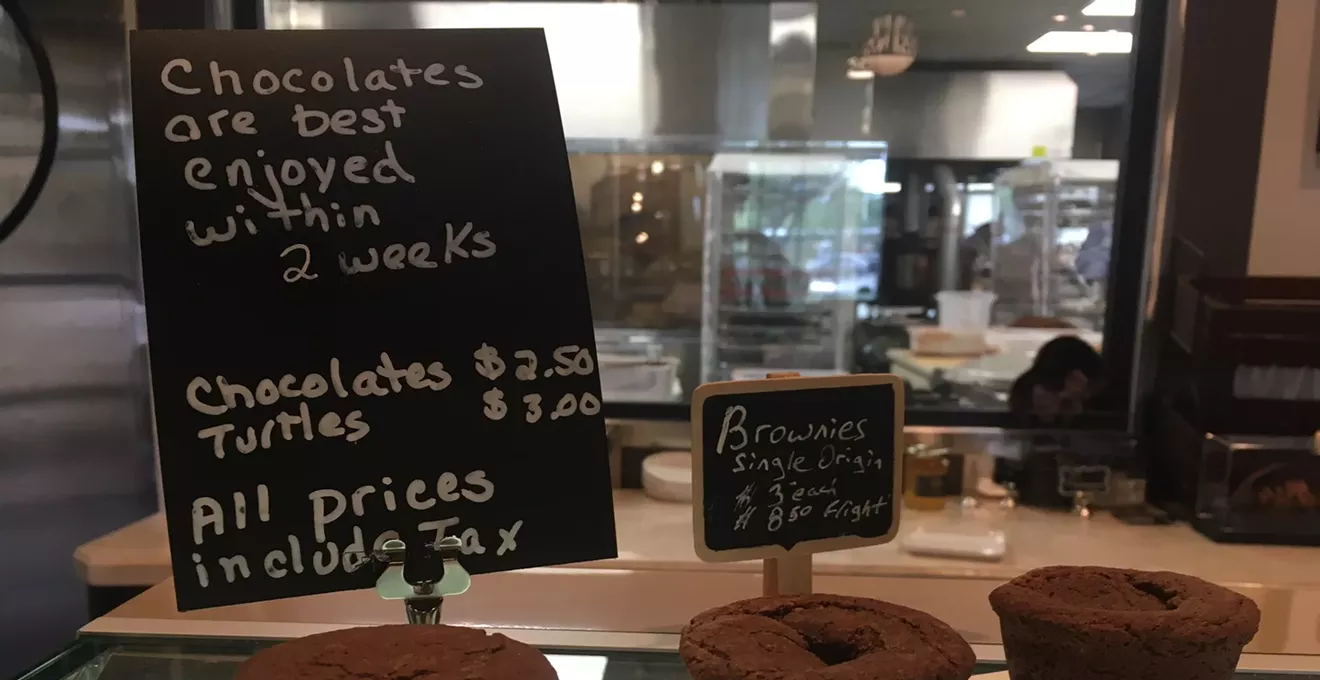 Chocolates
are best
enjoyed
within
2 weeks
Chocolates $2.50
Turtles $3.00
All prices
include Tax
Brownies
Single Origin
$3 each
$8 50 Flight